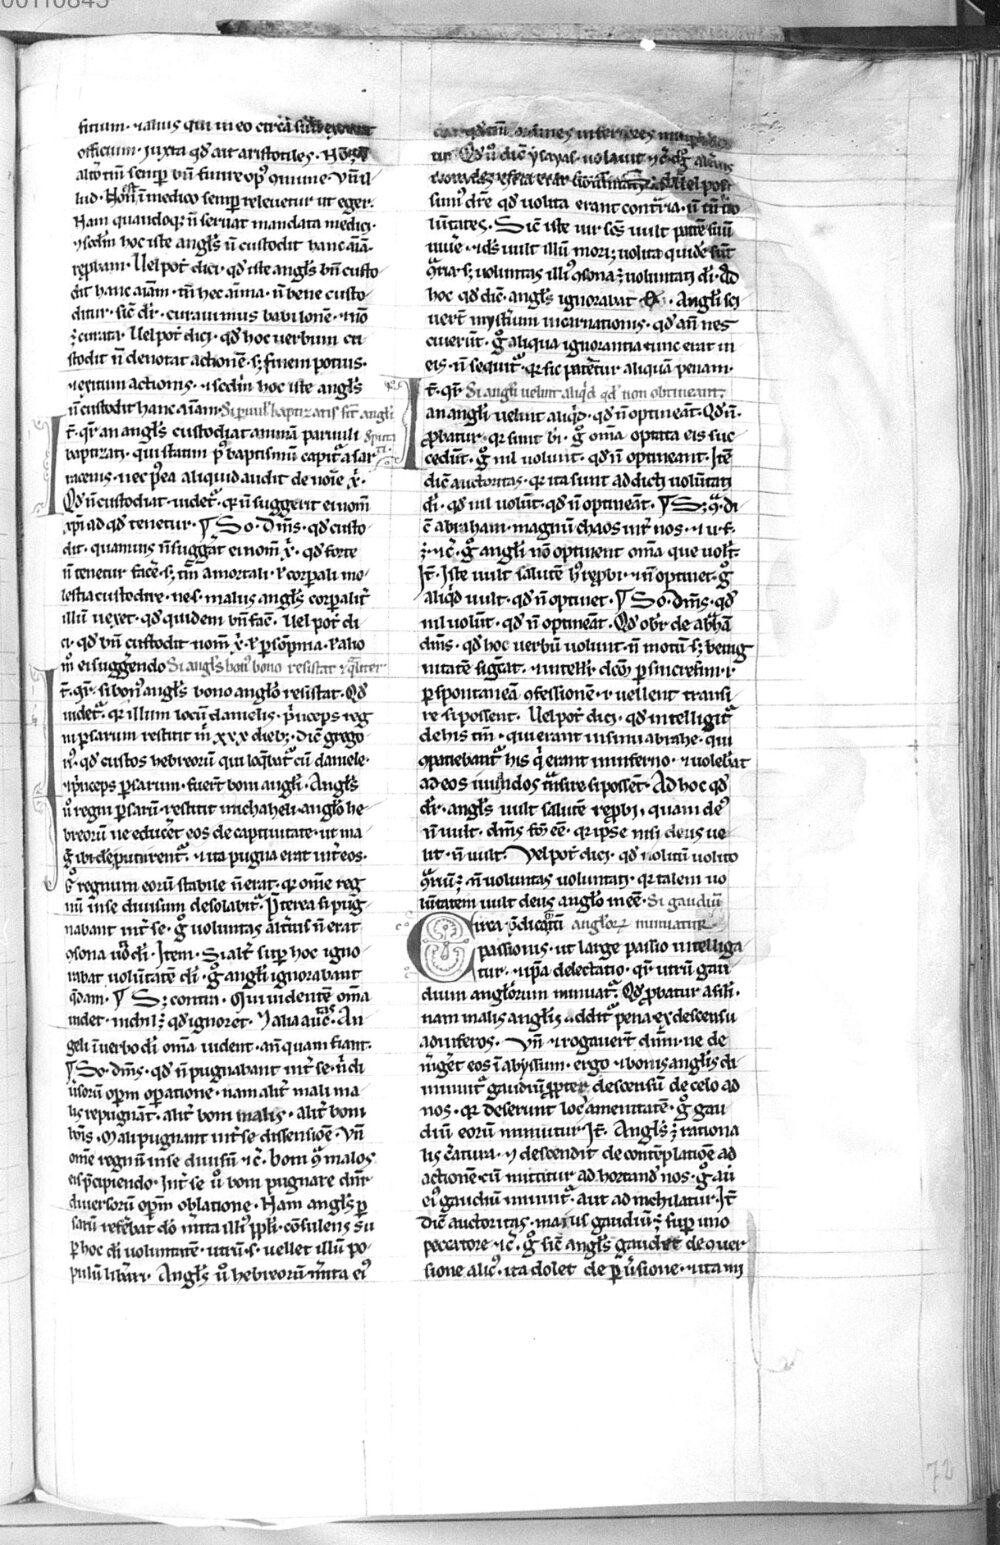 00110845
officium. iuxta qd' ait aristotiles. Nō
alio tm̄ semp bn̄ fumre opꝰ omne. Vn̄ il
lud. Non ē in medico semp releuetur ut eger.
Nam quandoqꝫ n̄ seruat mandata medici.
⁊ scdm̄ hoc iste angl's n̄ custodit hanc aīam
rep̄bam. Uel pot' dici. qd' iste angl's bn̄ custo
dit hanc aīam. tm̄ hec anima. n̄ bene custo
ditur. sic̄ dr̄. curauimus babilonē. ⁊ nō
ꝫ curata. Uel pot' dici. qd' hoc uerbum cu
stodit n̄ denotat actionē. sꝫ finem potius.
⁊ exitum actionis. ⁊ scdm̄ hoc iste angl's
n̄ custodit hanc aīam. Si paruul' baptizatis sit angl'i
t̄. qr̄ an angl's custodiat animā paruuli deputati
baptizati. qui statim pꝰ baptismū capit' a sar
racenis. nec pꝰea aliquid audit de noīe xp̄i.
Qd' n̄ custodiat. uidet'. qꝛ n̄ suggerit ei nom̄
xp̄i ad qd' tenetur. ¶ So. Dm̄s. qd' custo
dit. quamuis n̄ suggerat ei nom̄ xp̄i. qd' forte
n̄ tenetur facē. sꝫ tm̄ a mortali. ⁊ corp̄ali mo
lestia custodire. ne. s. malus angl's corp̄alit'
illū uexet. qd' quidem bn̄ fac̄. Uel pot' di
ci. qd' bn̄ custodit nom̄ xp̄i. ⁊ p sōpnia. ⁊ alio
m̊ ei suggerendo Si angl's bonꝰ bono resistat ⁊ qualiter
t̄. qr̄. si bonꝰ angl's bono anglo resistat. Qd'
uidet'. qꝛ illum locū danielis. pⁱnceps reg
ni psarum restitit m̄ xxx diebꝫ. dic̄ grego
rꝰ. qd' custos hebreorū qui loq̄bat' cū daniele.
⁊ pⁱnceps psarum. fuer̄t boni angl'i. Angl's
ū regni psarū. restitit michaheli. anglo he
breorū ne educēt eos de captiuitate. ut ma
g̊ ibi depurarent'. ⁊ ita pugna erat int' eos.
g̊ regnum eorū stabile n̄ erat. qꝛ om̄e reg
nū in se diuisum desolabit'. Pꝰterea si pug
nabant int' se. g̊ voluntas alt'ius n̄ erat
ꝯsona uo di'. Item. Si alt' sup hoc igno
rabat voluntatē di'. g̊ angl'i ignorabant
q̄dam. ¶ Sꝫ contra. Qui uidentē om̄ia
uidet. nichil ꝫ qd' ignoret. ⁊ alia auctas. An
geli ī uerbo di' om̄ia uident. anq̄uam fiant.
¶ So. dm̄s. qd' n̄ pugnabant int' se. n̄ di
uersorū opm̄ opatione. nam alit' mali ma
lis repugnāt. alit' boni malis. alit' boni
bōis. Mali pugnant int' se dissensiōe. Vn̄
om̄e regnū in se diuisū ⁊c̄. boni ꝯ̄ malos
eis pⁱncipiendo. Int' se ū boni pugnare dn̄r
diuersorū opm̄ oblatione. Nam angl's p
sarū refērebat dō m̄ita illiꝰ pp̄li. cōsulens su
p hoc di' voluntatē. utrū. s. uellet illū po
pulū lib'ari. Angl's ū hebreorū m̄ita eiꝰ
sumꝰ dr̄e. qd' uolita erant contⁱria. n̄ tn̄ uo
lūtates. Sic̄ iste uir sc̄s uult patrē suū
uiuē. ⁊ dꝰs uult illū mori. uolita quidē sūt
ꝯ̄ria. sꝫ uoluntas illiꝰ ꝯsona ꝫ uoluntati di'. Ad
hoc qd' dic̄. angl's ignorabat. Angl'i sci
uer̄t mysterium incarnationis. qd' an̄ nes
ciuerūt. g̊ aliqua ignorantia tunc erat in
eis. n̄ sequit'. qꝛ sic paterēt' aliquā penam.
t̄. qr̄. Si angl'i uelint aliqⁱd qd' non obtineant.
an angl'i uelint aliqⁱd. qd' n̄ optineāt. Qd' n̄.
pbatur. qꝛ sunt bi'. g̊ om̄ia optata eis suc
cedūt. g̊ nil uolunt. qd' n̄ optineant. Itē
dic̄ auctoritas. qꝛ ita sunt addicti uolūtati
di'. qd' nil uolūt. qd' n̄ optineāt. ¶ Sꝫ ꝯ̄. di
c̄ abraham. magnum chaos int' nos. ⁊ u. f.
ꝫ. ⁊c̄. g̊ angl'i nō optinent om̄ia que uolūt.
It̄. Iste uult salutē hꝰ rep̄bi. ⁊ n̄ optinet. g̊
aliqⁱd uult. qd' n̄ optinet. ¶ So. dm̄s. qd'
nil uolūt. qd' n̄ optineāt. Qd' obr̄ de abrahā
dm̄s. qd' hoc uerbū uolunt. n̄ motū. sꝫ benig
nitatē signat. ⁊ intell'i. dictū p sincresim. i.
p spontaneā ꝯfessionē. ⁊ uellent transi
re si possent. Uel pot' dici. qd' intelligit'
de his tm̄. qui erant in sinu abrahe. qui
ꝯpatiebant' his qⁱ erant in inferno. ⁊ uolebāt
ad eos mūdos tⁱnsire si possēt. Ad hoc qd'
dr̄. angl's uult salutē rep̄bi. quam deꝰ
n̄ uult. dm̄s. qꝛ ipse nisi deus ue
lit. n̄ uult. Vel pot' dici. qd' uolitū uolito
ꝯ̄riū ꝫ. n̄ uoluntas uoluntati. qꝛ talem uo
lūtatem uult deus anglo inēe. Si gaudiū
Circa p̄dicta angl'orꝫ minuatur
passionis. ut large passio intelliga
tur. ⁊ ip̄a delectatio. qr̄ utrū gau
dium angl'orum minuat'. Qd' pbatur a sil'i.
nam malis angl'is. addit' pena ex descensu
ad inferos. Vn̄ ⁊ rogauer̄t dn̄m. ne de
m̄get eos ī abyssum. ergo ⁊ bonis angl'is di
minuit' gaudiū ꝓpter descensū de celo ad
nos. qꝛ deserunt loci amenitatē. g̊ gau
diū eorū minuitur. It̄. Angl's ꝫ rationa
lis c̄atura. ⁊ descendit de contēplatiōe ad
actionē. cū mittitur ad hortand' nos. g̊ aut
eiꝰ gaudiū minuit'. aut adnichilatur. It̄
dic̄ auctoritas. maius gaudiū ꝫ sup uno
peccatore ⁊c̄. g̊ sic̄ angl's gaudet de ꝯuer
sione alicꝰ. ita dolet de puersione. ⁊ ita mi
72